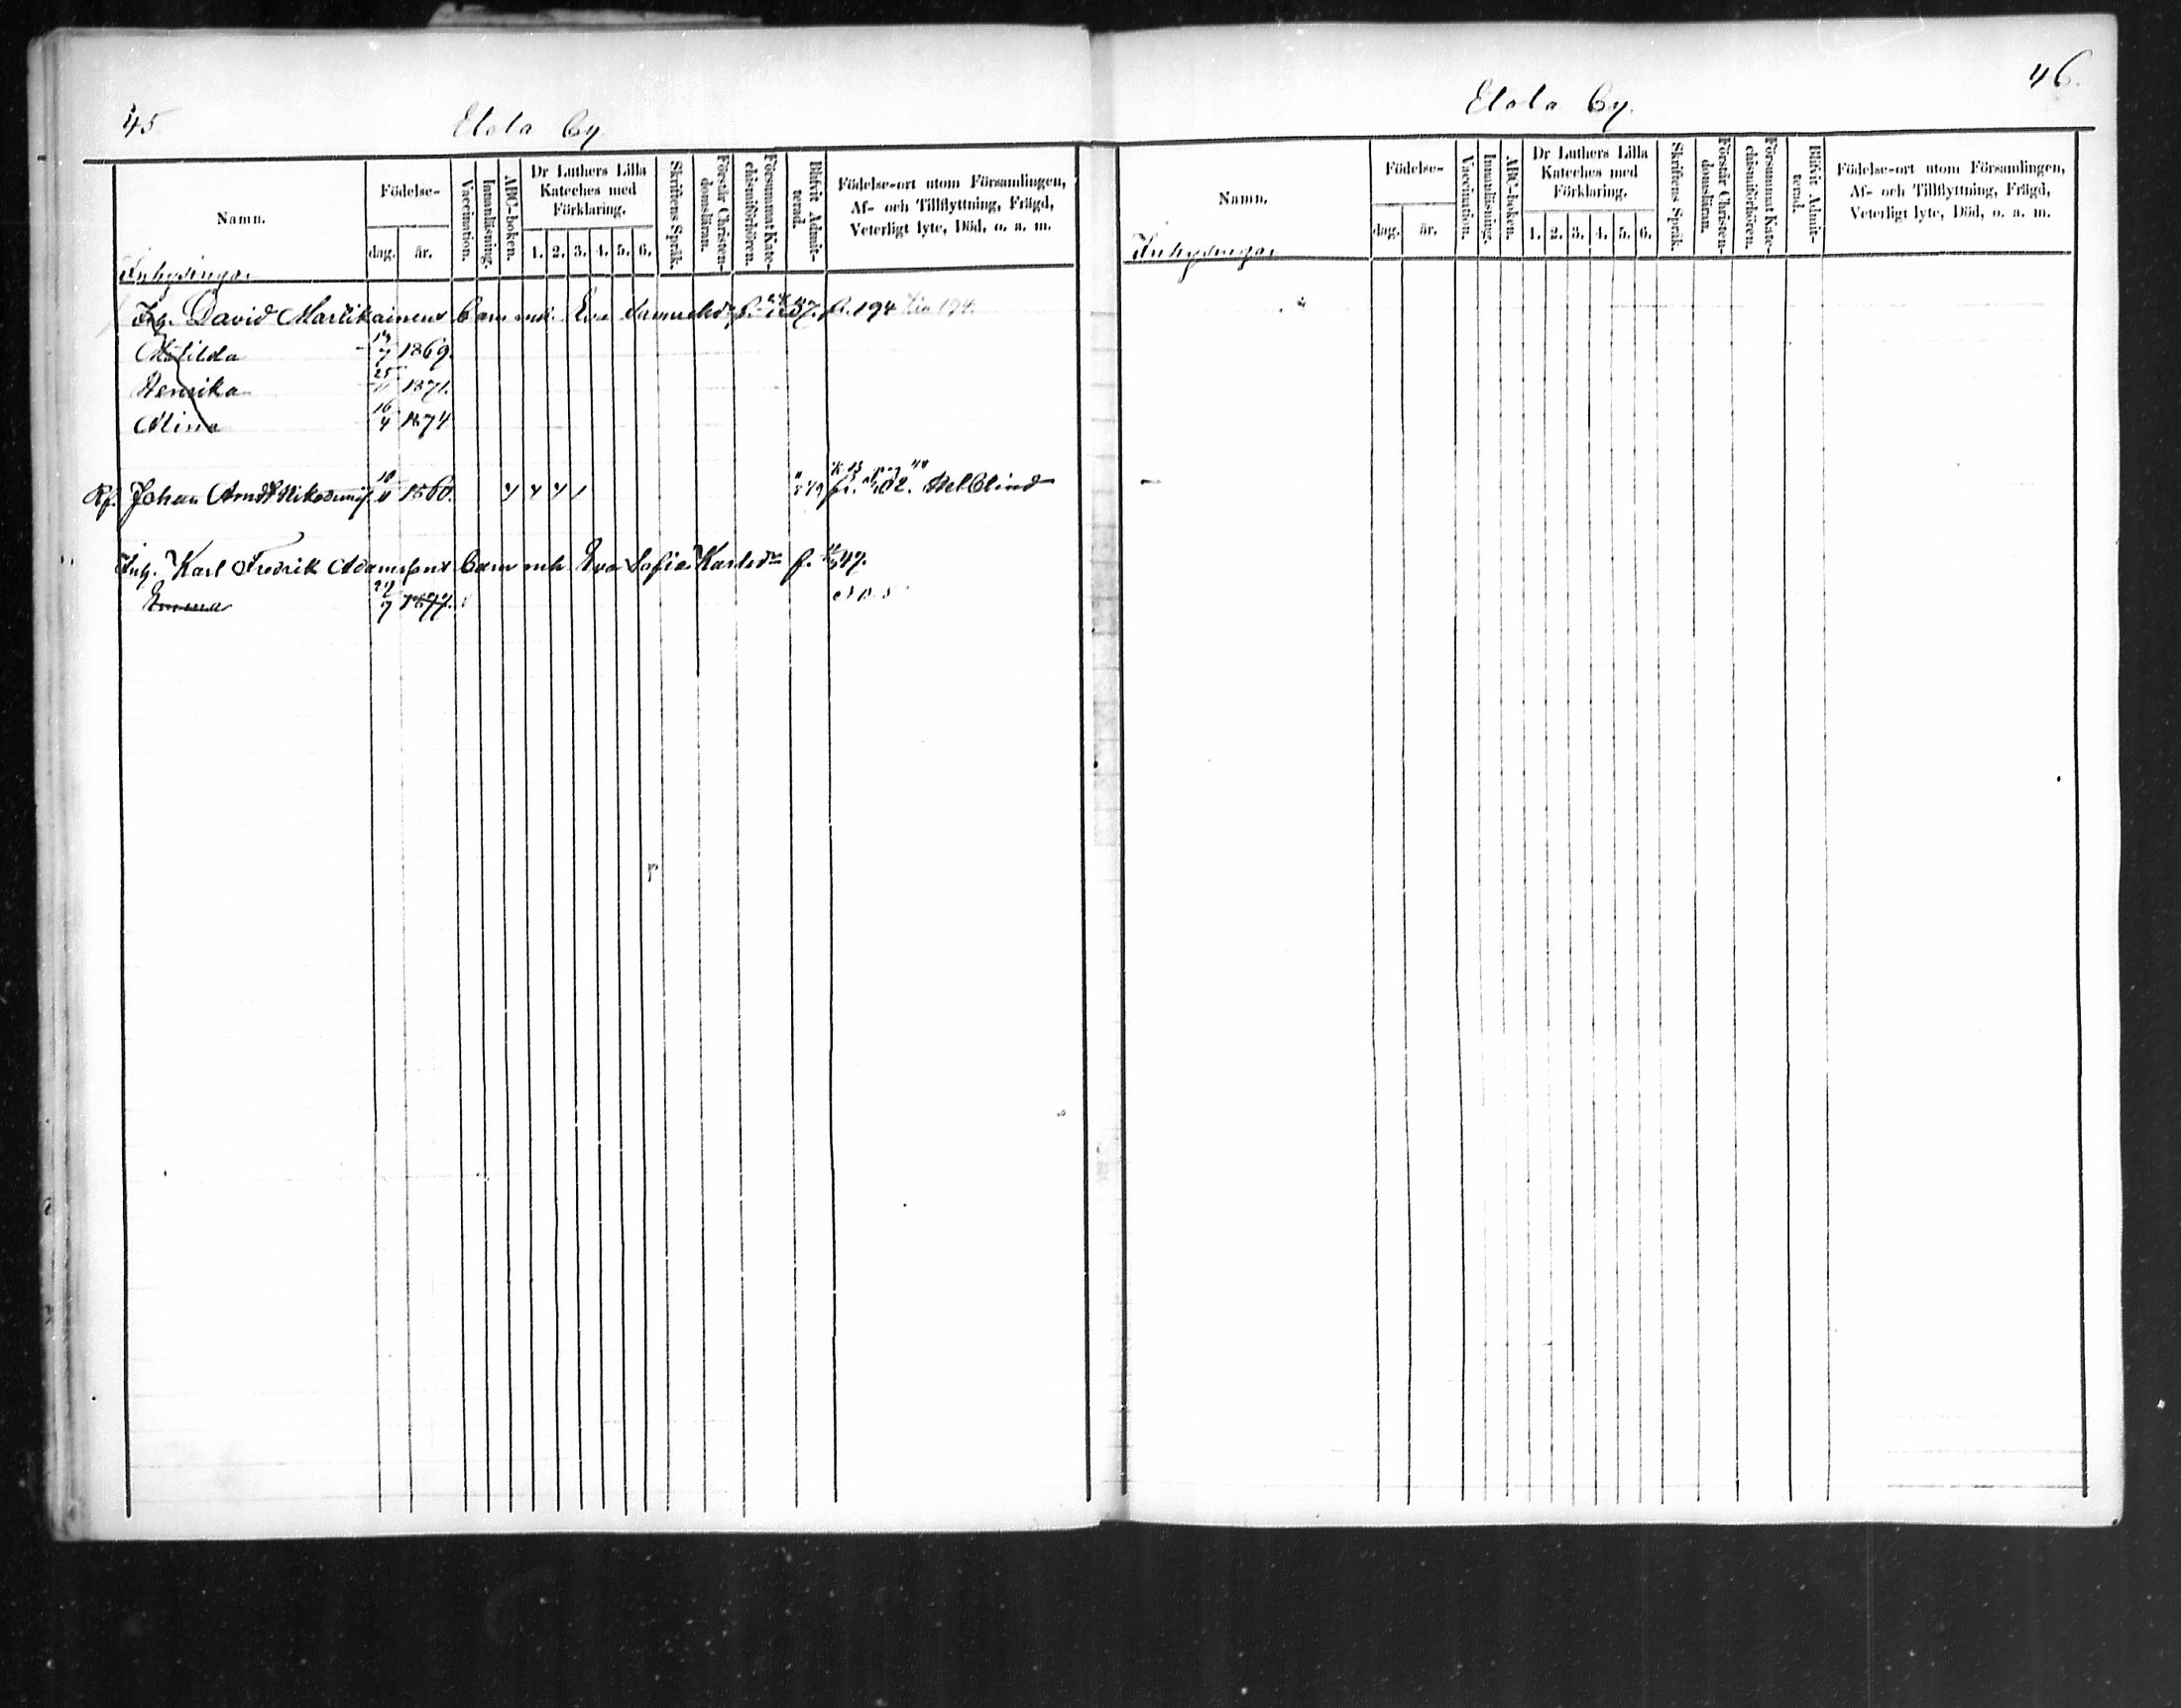 45
Elola by
Namn.
Födelse-
dag.
år.
Vaccination.
Innanläsning.
ABC-boken.
Dr Luthers Lilla
Kateches med
Förklaring.
1. 2. 3. 4. 5. 6.
Skriftens Språk.
Förstår Christen-
domsläran.
Försummat Kate-
chismiförhören.
Blifvit Admit-
terad.
Födelse-ort utom Församlingen,
Af- och Tillflyttning, Frägd,
Veterligt lyte, Död, o. a. m.
Inhysingar
Inh. David Martikainens barn m. Eva Samuelsdr f. 37. fr. 194
Matilda 7 1869.
Henrika 25 11 1871.
Mina 16 4 1874
Rf. Johan 10 11 1860. fr. Helblind
Inh. Karl Fredrik Adamssons barn mh Eva Sofia Karlsdr f. 47.
Emma 7 1877.
46.
Elola by.
Namn.
Födelse-
dag.
år.
Vaccination.
Innanläsning.
ABC-boken.
Dr Luthers Lilla
Kateches med
Förklaring.
1. 2. 3. 4. 5. 6.
Skriftens Språk.
Förstår Christen-
domsläran.
Försummat Kate-
chismiförhören.
Blifvit Admit-
terad.
Födelse-ort utom Församlingen,
Af- och Tillflyttning, Frägd,
Veterligt lyte, Död, o. a. m.
Inhysingar